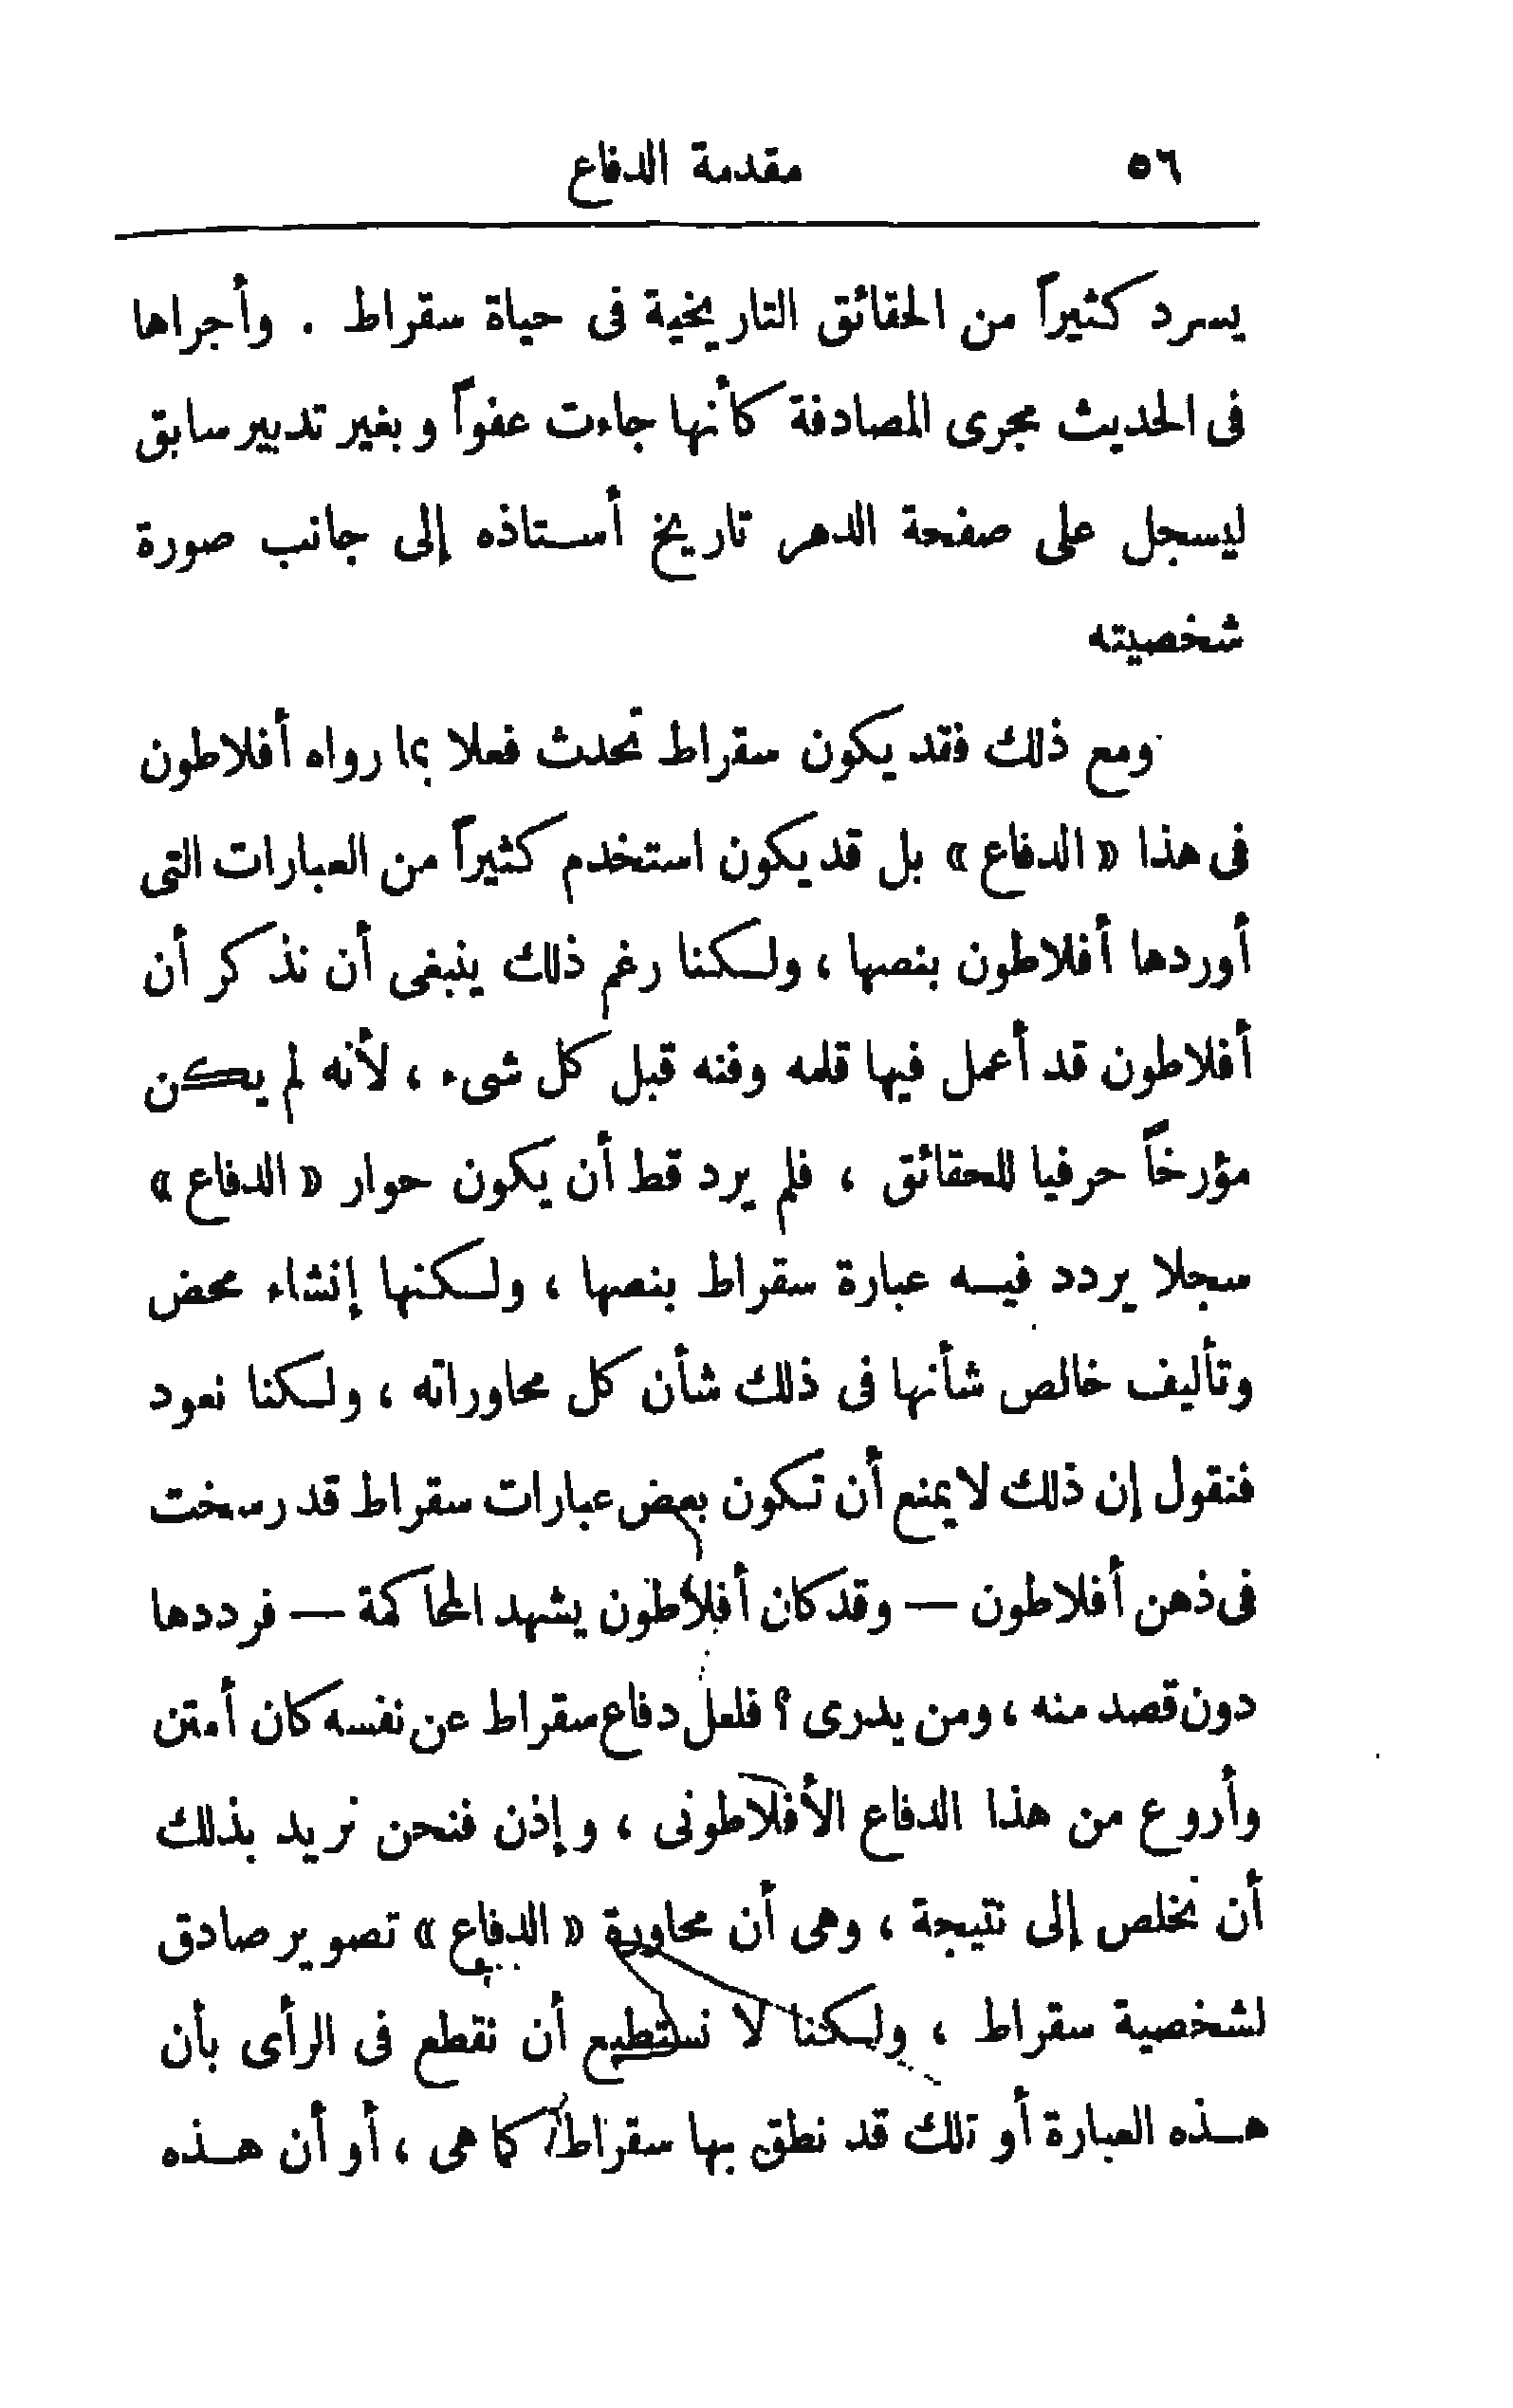 ٥٦ مقدمة الدفاع
يسرد كثيراً من الحقائق التاريخية فى حياة سقراط . وأجراها
فى الحديث مجرى المصادفة كأنها جاءت عفواً وبغير تدبير سابق
ليسجل على صفحة الدهر تاريخ أستاذه إلى جانب صورة
شخصيته
ومع ذلك فقد يكون سقراط تحدث فعلا بما رواه أفلاطون
فى هذا « الدفاع » بل قد يكون استخدم كثيراً من العبارات التى
أوردها أفلاطون بنصها ، ولكنا رغم ذلك ينبغى أن نذكر أن
أفلاطون قد أعمل فيها قلمه وفنه قبل كل شىء ، لأنه لم يكن
مؤرخاً حرفيا للحقائق ، فلم يرد قط أن يكون حوار « الدفاع »
سجلا يردد فيه عبارة سقراط بنصها ، ولكنها إنشاء محض
وتأليف خالص شأنها فى ذلك شأن كل محاوراته ، ولكنا نعود
فنقول إن ذلك لا يمنع أن تكون بعض عبارات سقراط قد رسخت
فى ذهن أفلاطون — وقد كان أفلاطون يشهد المحاكمة — فرددها
دون قصد منه ، ومن يدرى ؟ فلعل دفاع سقراط عن نفسه كان أمتن
وأروع من هذا الدفاع الأفلاطونى ، وإذن فنحن نريد بذلك
أن نخلص إلى نتيجة ، وهى أن محاورة « الدفاع » تصوير صادق
لشخصية سقراط ، ولكنا لا نستطيع أن نقطع فى الرأى بأن
هذه العبارة أو تلك قد نطق بها سقراط كما هى ، أو أن هذه